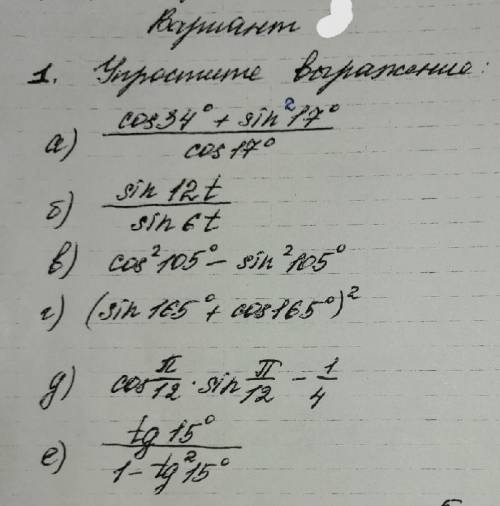 Вариант
1. Упростите выражение:
а) (cos34° + sin²17°) / cos17°
б) sin 12t / sin 6t
в) cos²105° - sin²105°
г) (sin 165° + cos165°)²
д) cos π/12 · sin π/12 - 1/4
е) tg 15° / (1 - tg²15°)